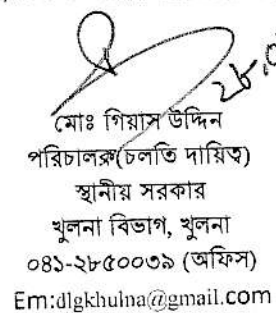 মোঃ গিয়াস উদ্দিন
পরিচালক(চলতি দায়িত্ব)
স্থানীয় সরকার
খুলনা বিভাগ, খুলনা
০৪১-২৮৫০০৩৯ (অফিস)
Em:dlgkhulna@gmail.com